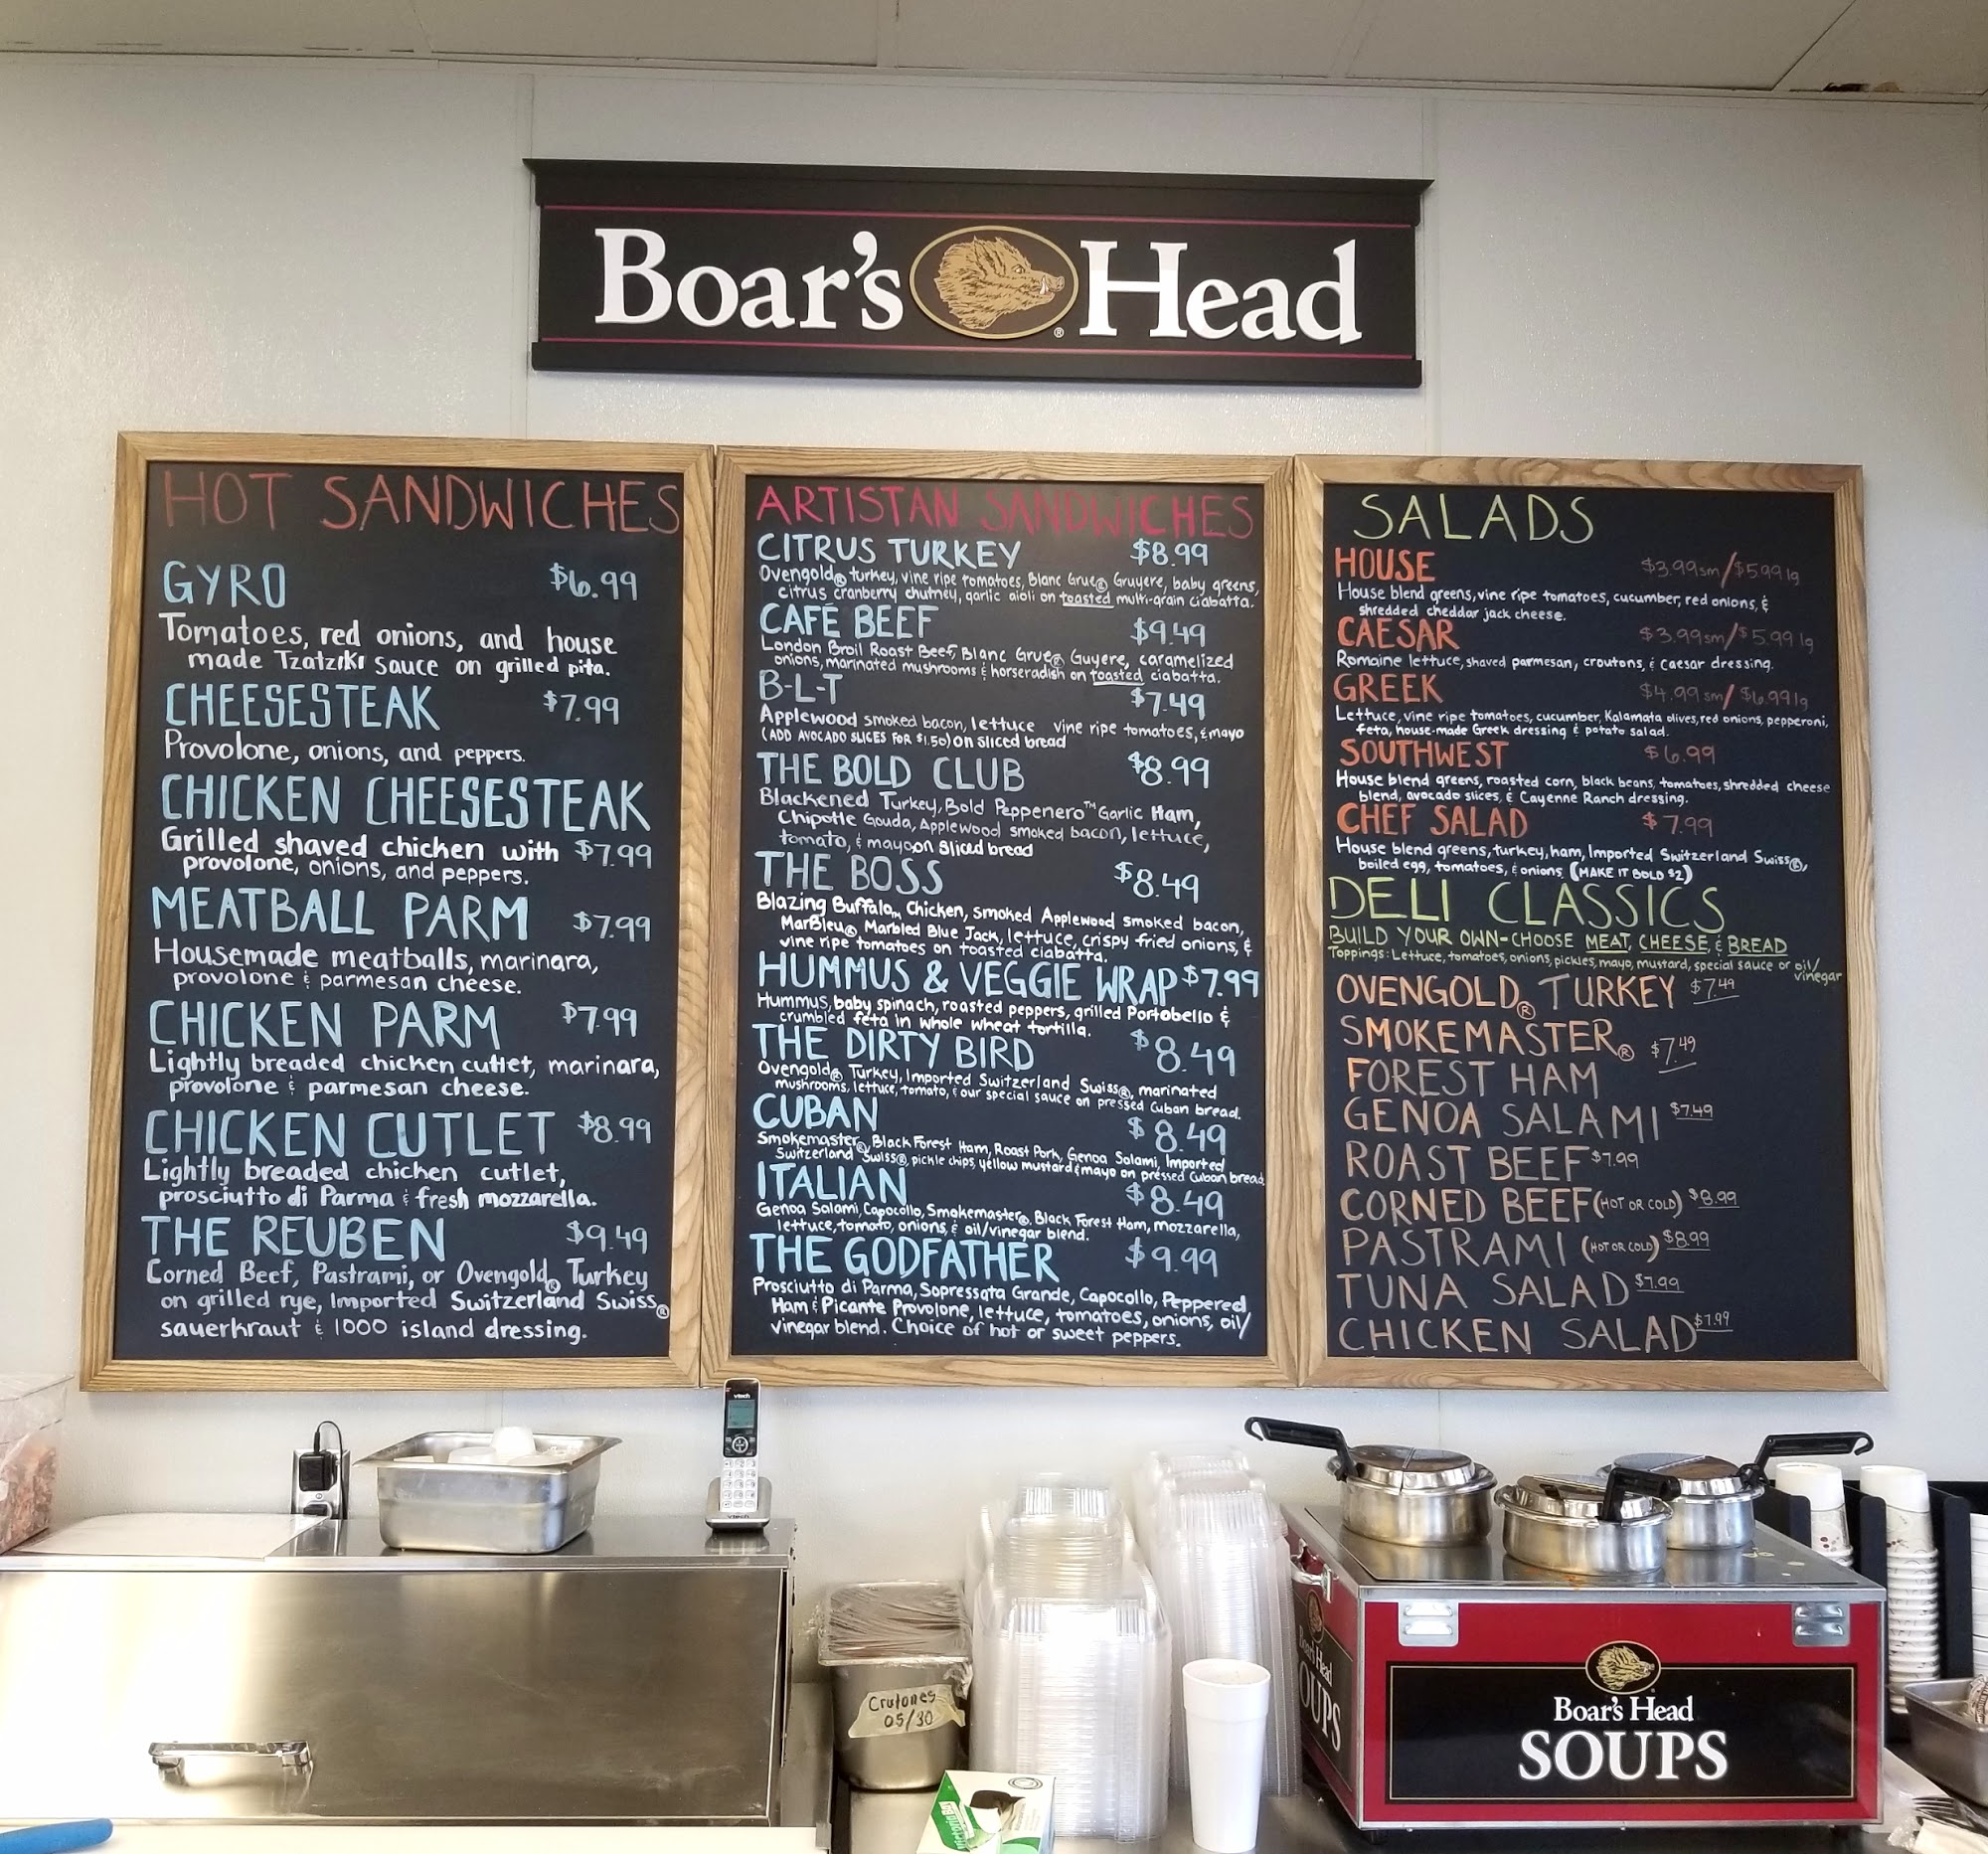 Boar's Head
HOT SANDWICHES
GYRO $6.99
Tomatoes, red onions, and house
made Tzatziki sauce on grilled pita.
CHEESESTEAK $7.99
Provolone, onions, and peppers.
CHICKEN CHEESESTEAK
Grilled shaved chicken with $7.99
provolone, onions, and peppers.
MEATBALL PARM $7.99
Housemade meatballs, marinara,
provolone & parmesan cheese.
CHICKEN PARM $7.99
Lightly breaded chicken cutlet, marinara,
provolone & parmesan cheese.
CHICKEN CUTLET $8.99
Lightly breaded chicken cutlet,
prosciutto di Parma & fresh mozzarella.
THE REUBEN $9.49
Corned Beef, Pastrami, or Ovengold® Turkey
on grilled rye, Imported Switzerland Swiss®
sauerkraut & 1000 island dressing.
ARTISTAN SANDWICHES
CITRUS TURKEY $8.99
Ovengold® turkey, vine ripe tomatoes, Blanc Grue® Gruyere, baby greens,
citrus cranberry chutney, garlic aioli on toasted multi-grain ciabatta.
CAFÉ BEEF $9.49
London Broil Roast Beef, Blanc Grue® Guyere, caramelized
onions, marinated mushrooms & horseradish on toasted ciabatta.
B-L-T $7.49
Applewood smoked bacon, lettuce vine ripe tomatoes, & mayo
(ADD AVOCADO SLICES FOR $1.50) on sliced bread
THE BOLD CLUB $8.99
Blackened Turkey, Bold Peppenero™ Garlic Ham,
Chipotle Gouda, Applewood smoked bacon, lettuce,
tomato, & mayo on sliced bread
THE BOSS $8.49
Blazing Buffalo™ Chicken, smoked Applewood smoked bacon,
MarBleu® Marbled Blue Jack, lettuce, crispy fried onions, &
vine ripe tomatoes on toasted ciabatta.
HUMMUS & VEGGIE WRAP $7.99
Hummus, baby spinach, roasted peppers, grilled Portobello &
crumbled feta in whole wheat tortilla.
THE DIRTY BIRD $8.49
Ovengold® Turkey, Imported Switzerland Swiss®, marinated
mushrooms, lettuce, tomato, & our special sauce on pressed Cuban bread.
CUBAN $8.49
Smokemaster® Black Forest Ham, Roast Pork, Genoa Salami, Imported
Switzerland Swiss®, pickle chips, yellow mustard & mayo on pressed Cuban bread.
ITALIAN $8.49
Genoa Salami, Capocollo, Smokemaster® Black Forest Ham, mozzarella,
lettuce, tomato, onions, & oil/vinegar blend.
THE GODFATHER $9.99
Prosciutto di Parma, Sopressata Grande, Capocollo, Peppered
Ham & Picante Provolone, lettuce, tomatoes, onions, oil/
vinegar blend. Choice of hot or sweet peppers.
SALADS
HOUSE $3.99 sm/$5.99 lg
House blend greens, vine ripe tomatoes, cucumber, red onions, &
shredded cheddar jack cheese.
CAESAR $3.99 sm/$5.99 lg
Romaine lettuce, shaved parmesan, croutons, & Caesar dressing.
GREEK $4.99 sm/$6.99 lg
Lettuce, vine ripe tomatoes, cucumber, Kalamata olives, red onions, pepperoni,
feta, house-made Greek dressing & potato salad.
SOUTHWEST $6.99
House blend greens, roasted corn, black beans, tomatoes, shredded cheese
blend, avocado slices, & Cayenne Ranch dressing.
CHEF SALAD $7.99
House blend greens, turkey, ham, Imported Switzerland Swiss®,
boiled egg, tomatoes, & onions. (MAKE IT BOLD $2)
DELI CLASSICS
BUILD YOUR OWN-CHOOSE MEAT, CHEESE, & BREAD
Toppings: Lettuce, tomatoes, onions, pickles, mayo, mustard, special sauce or oil/
vinegar
OVENGOLD® TURKEY $7.49
SMOKEMASTER® $7.49
FOREST HAM
GENOA SALAMI $7.49
ROAST BEEF $7.99
CORNED BEEF (HOT OR COLD) $8.99
PASTRAMI (HOT OR COLD) $8.99
TUNA SALAD $7.99
CHICKEN SALAD $7.99
vtech
vtech
Crutones
05/30
Boar's Head
SOUPS